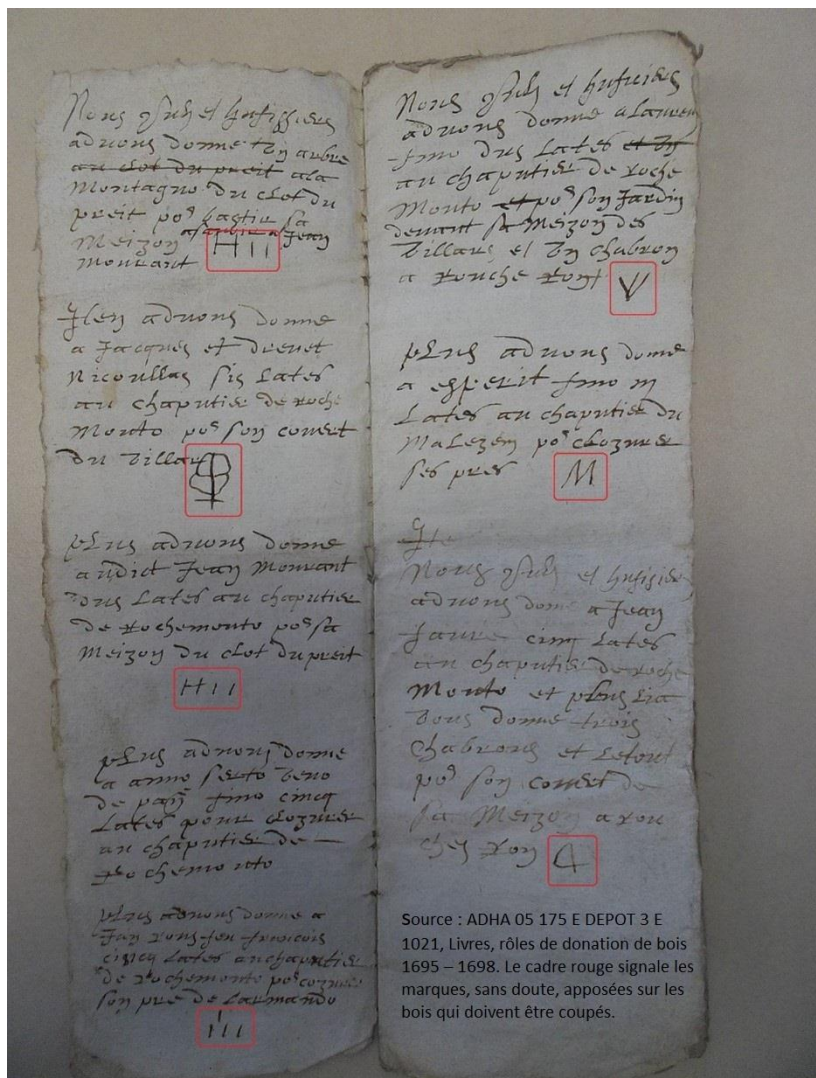 Nous et
advons donne un arbre
au clot du preit ala
Montagno du clot du
preit po^s bastir sa
Meizon Jean
Mourant HII
Iten advons donne
a Jacques et drevet
Nicoullas sis Lates
au chaputier de roche
Monto po^s son couvert
du villar
plus advons donne
audict Jean Mourant
Lates au chaputier
de Rochemonto po^s sa
Meizon du clot du preit
HII
plus advons donne
a anno
de fino cincq
Lates pour clozurer
au chaputier de
Rochemonto
plus advons donne a
Jan rous feu francois
cincq Lates au chaputier
de Rochemonto po^s cozurer
son pre de Larmando
III
Nous et
advons donne a Laurens
fino Lates et un
au chaputier de roche
Monto et po^s son Jardin
devant sa Meizon des
Villars et un chabron
a Rouche Ront V
plus advons donne
a esperit fino
Lates au chaputier du
Malezem po^s clozurer
ses pres M
Ite
Nous et
advons donne a Jean
faure cinq Lates
au chaputier de roche
Monto et plus
donne trois
chabrons et Letout
po^s son couvert de
sa Meizon a rou
chey Ron
Source : ADHA 05 175 E DEPOT 3 E
1021, Livres, rôles de donation de bois
1695 – 1698. Le cadre rouge signale les
marques, sans doute, apposées sur les
bois qui doivent être coupés.